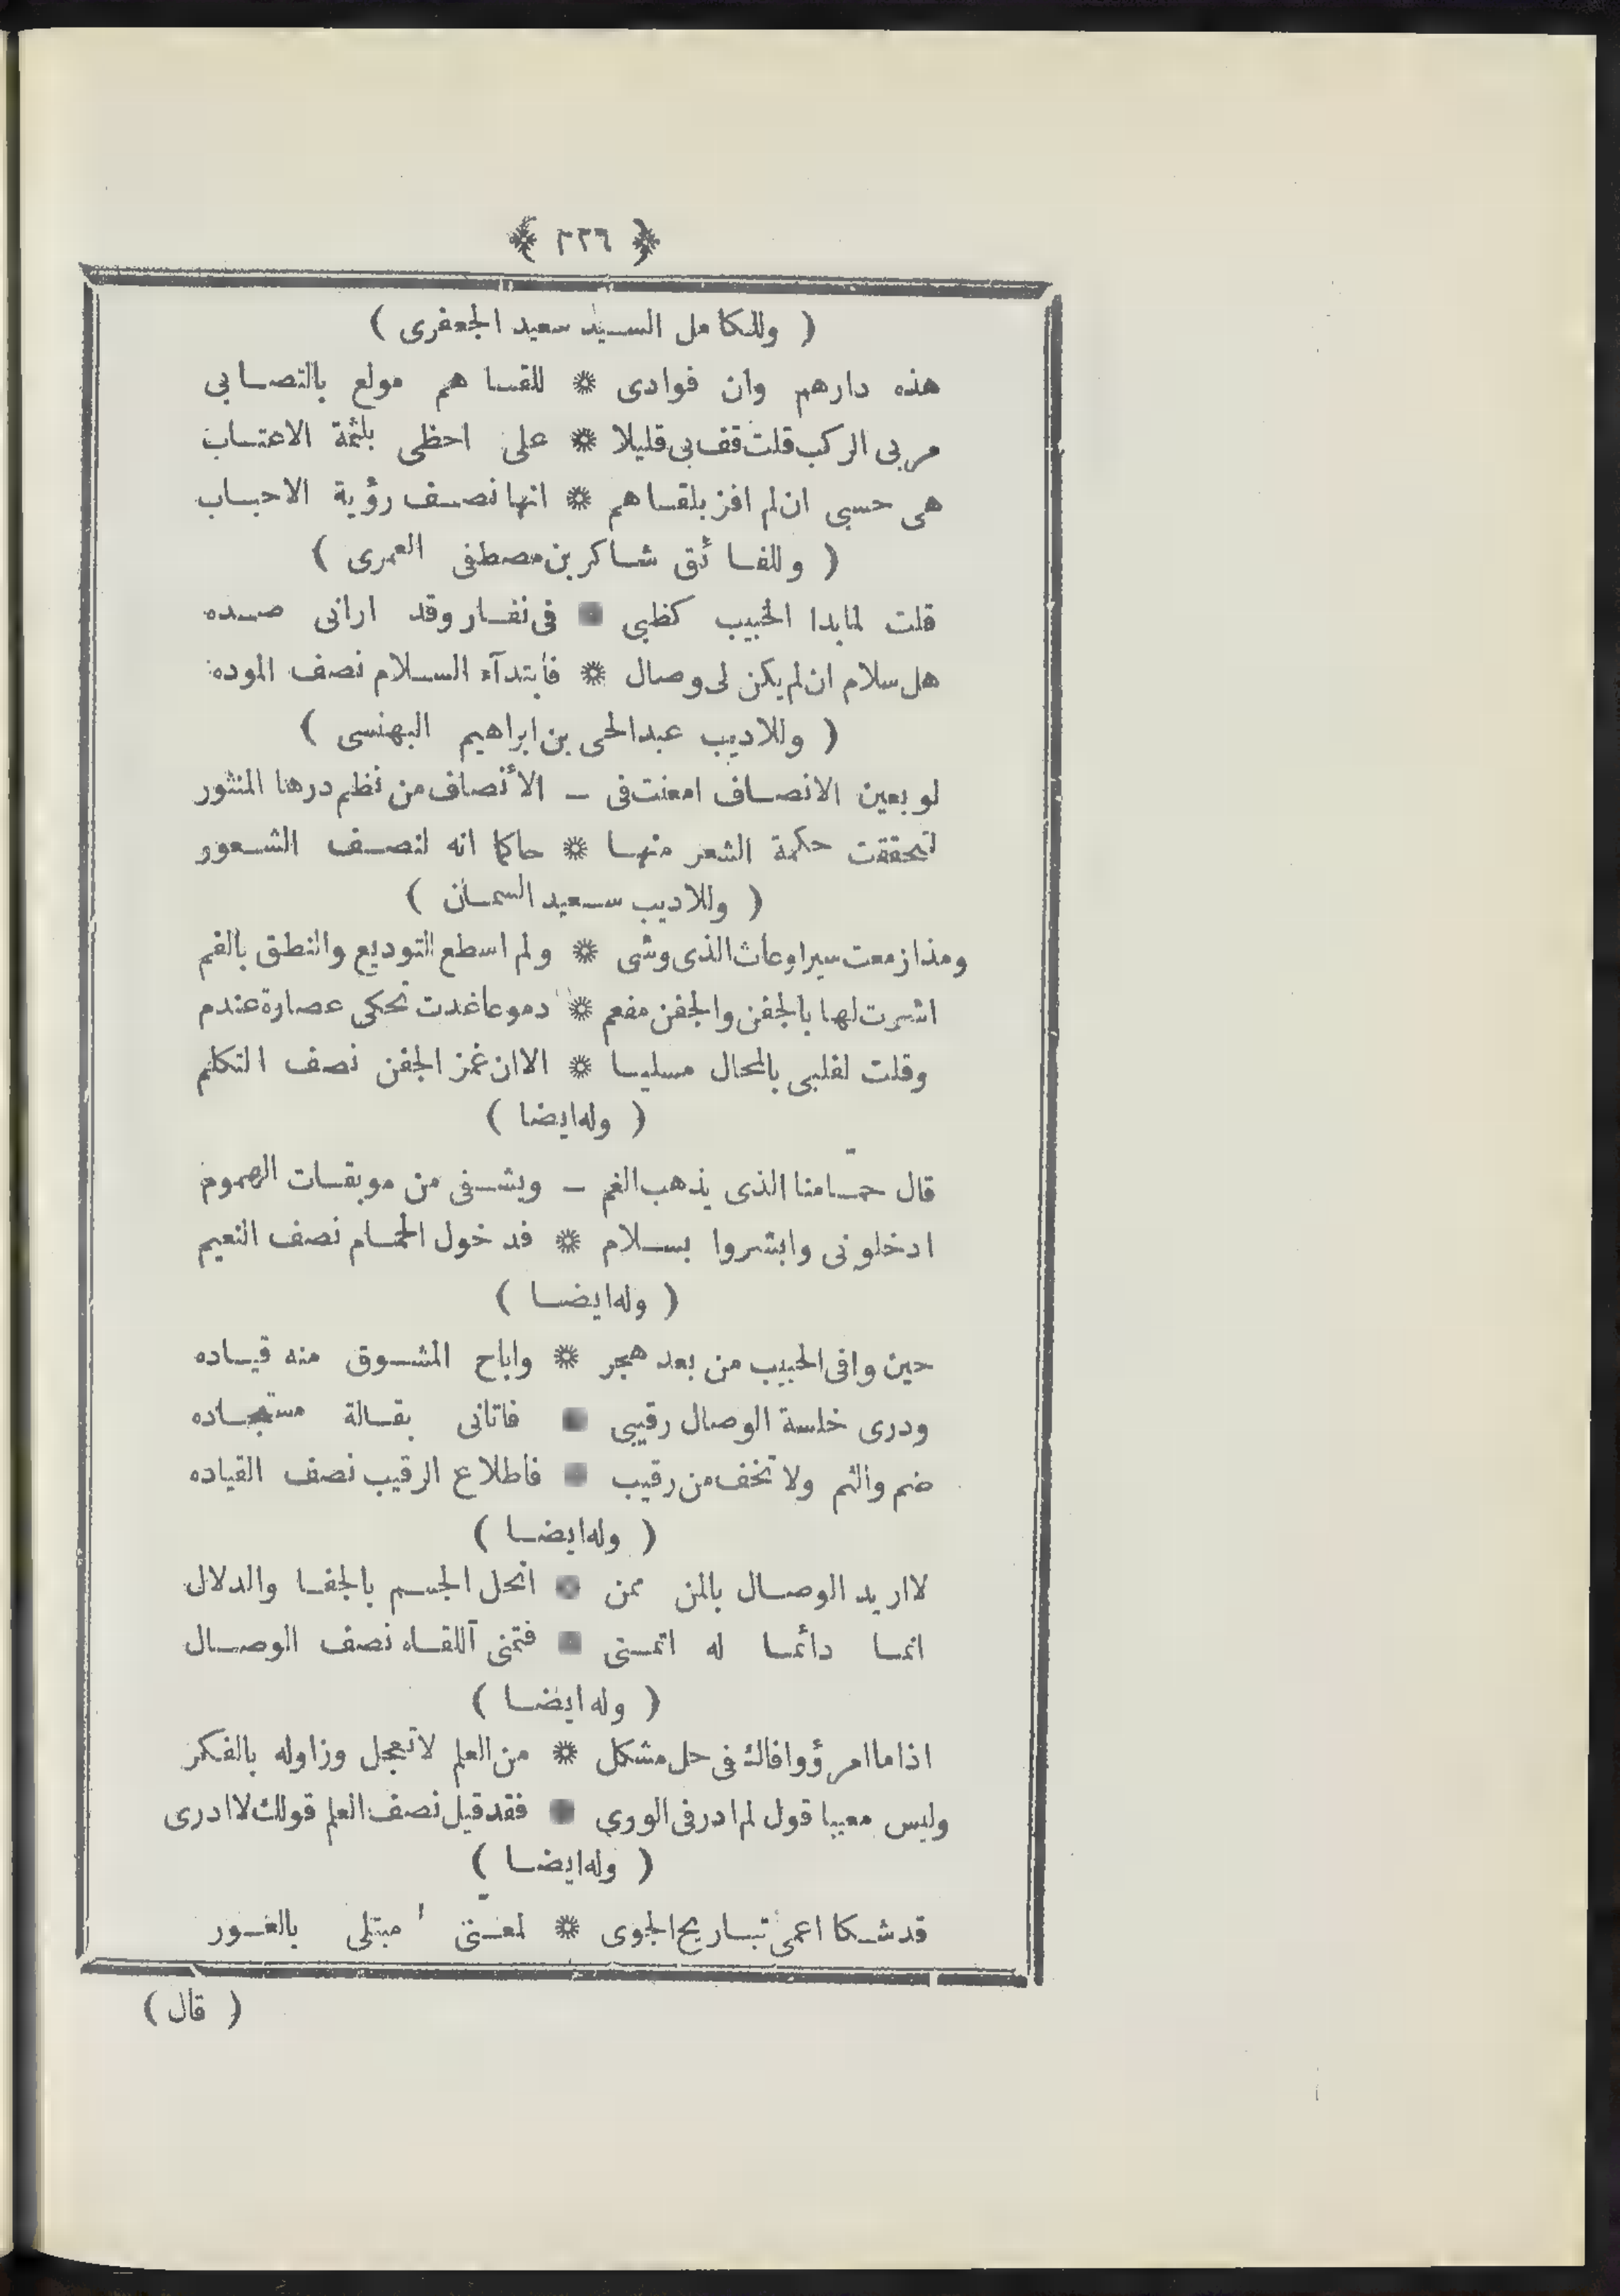 ﴿ ٢٢٦ ﴾
( وللكامل السيد سعيد الجعفرى )
هذه دارهم وان فوادى * للقاهم مولع بالتصابى
مر بى الركب قلت قف بى قليلا * على احظى بلثمة الاعتاب
هى حسبى ان لم افز بلقاهم * انها نصف رؤية الاحباب
( وللفائق شاكر بن مصطفى العمرى )
قلت لما بدا الحبيب كظبى * فى نفار وقد ارانى صده
هل سلام ان لم يكن لى وصال * فأبتدآء السلام نصف الموده
( وللاديب عبد الحى بن ابراهيم البهنسى )
لو بعين الانصاف امعنت فى – الأنصاف من نظم درها المنثور
لتحققت حكمة الشعر منها * حاكما انه لنصف الشعور
( وللاديب سعيد السمان )
ومذ ازمعت سيرا وعاث الذى وشى * ولم اسطع التوديع والنطق بالفم
اشرت لها بالجفن والجفن مفعم * دموعا غدت تحكى عصارة عندم
وقلت لقلبى بالمحال مسليا * الا ان غمز الجفن نصف التكلم
( وله ايضا )
قال حمامنا الذى يذهب الغم – ويشفى من موبقات الهموم
ادخلونى وابشروا بسلام * فدخول الحمام نصف النعيم
( وله ايضا )
حين وافى الحبيب من بعد هجر * واباح المشوق منه قياده
ودرى خلسة الوصال رقيبى * فاتانى بقالة مستجاده
ضم والثم ولا تخف من رقيب * فاطلاع الرقيب نصف القياده
( وله ايضا )
لا اريد الوصال بالمن ممن * انحل الجسم بالجفا والدلال
انما دائما له اتمنى * فتمنى آللقاه نصف الوصال
( وله ايضا )
اذا ما امرؤ وافاك فى حل مشكل * من العلم لا تعجل وزاوله بالفكر
وليس معيبا قول لم ادر فى الورى * فقد قيل نصف العلم قولك لا ادرى
( وله ايضا )
قد شكا اعمى تباريح الجوى * لمعنى مبتلى بالعور
( قال )